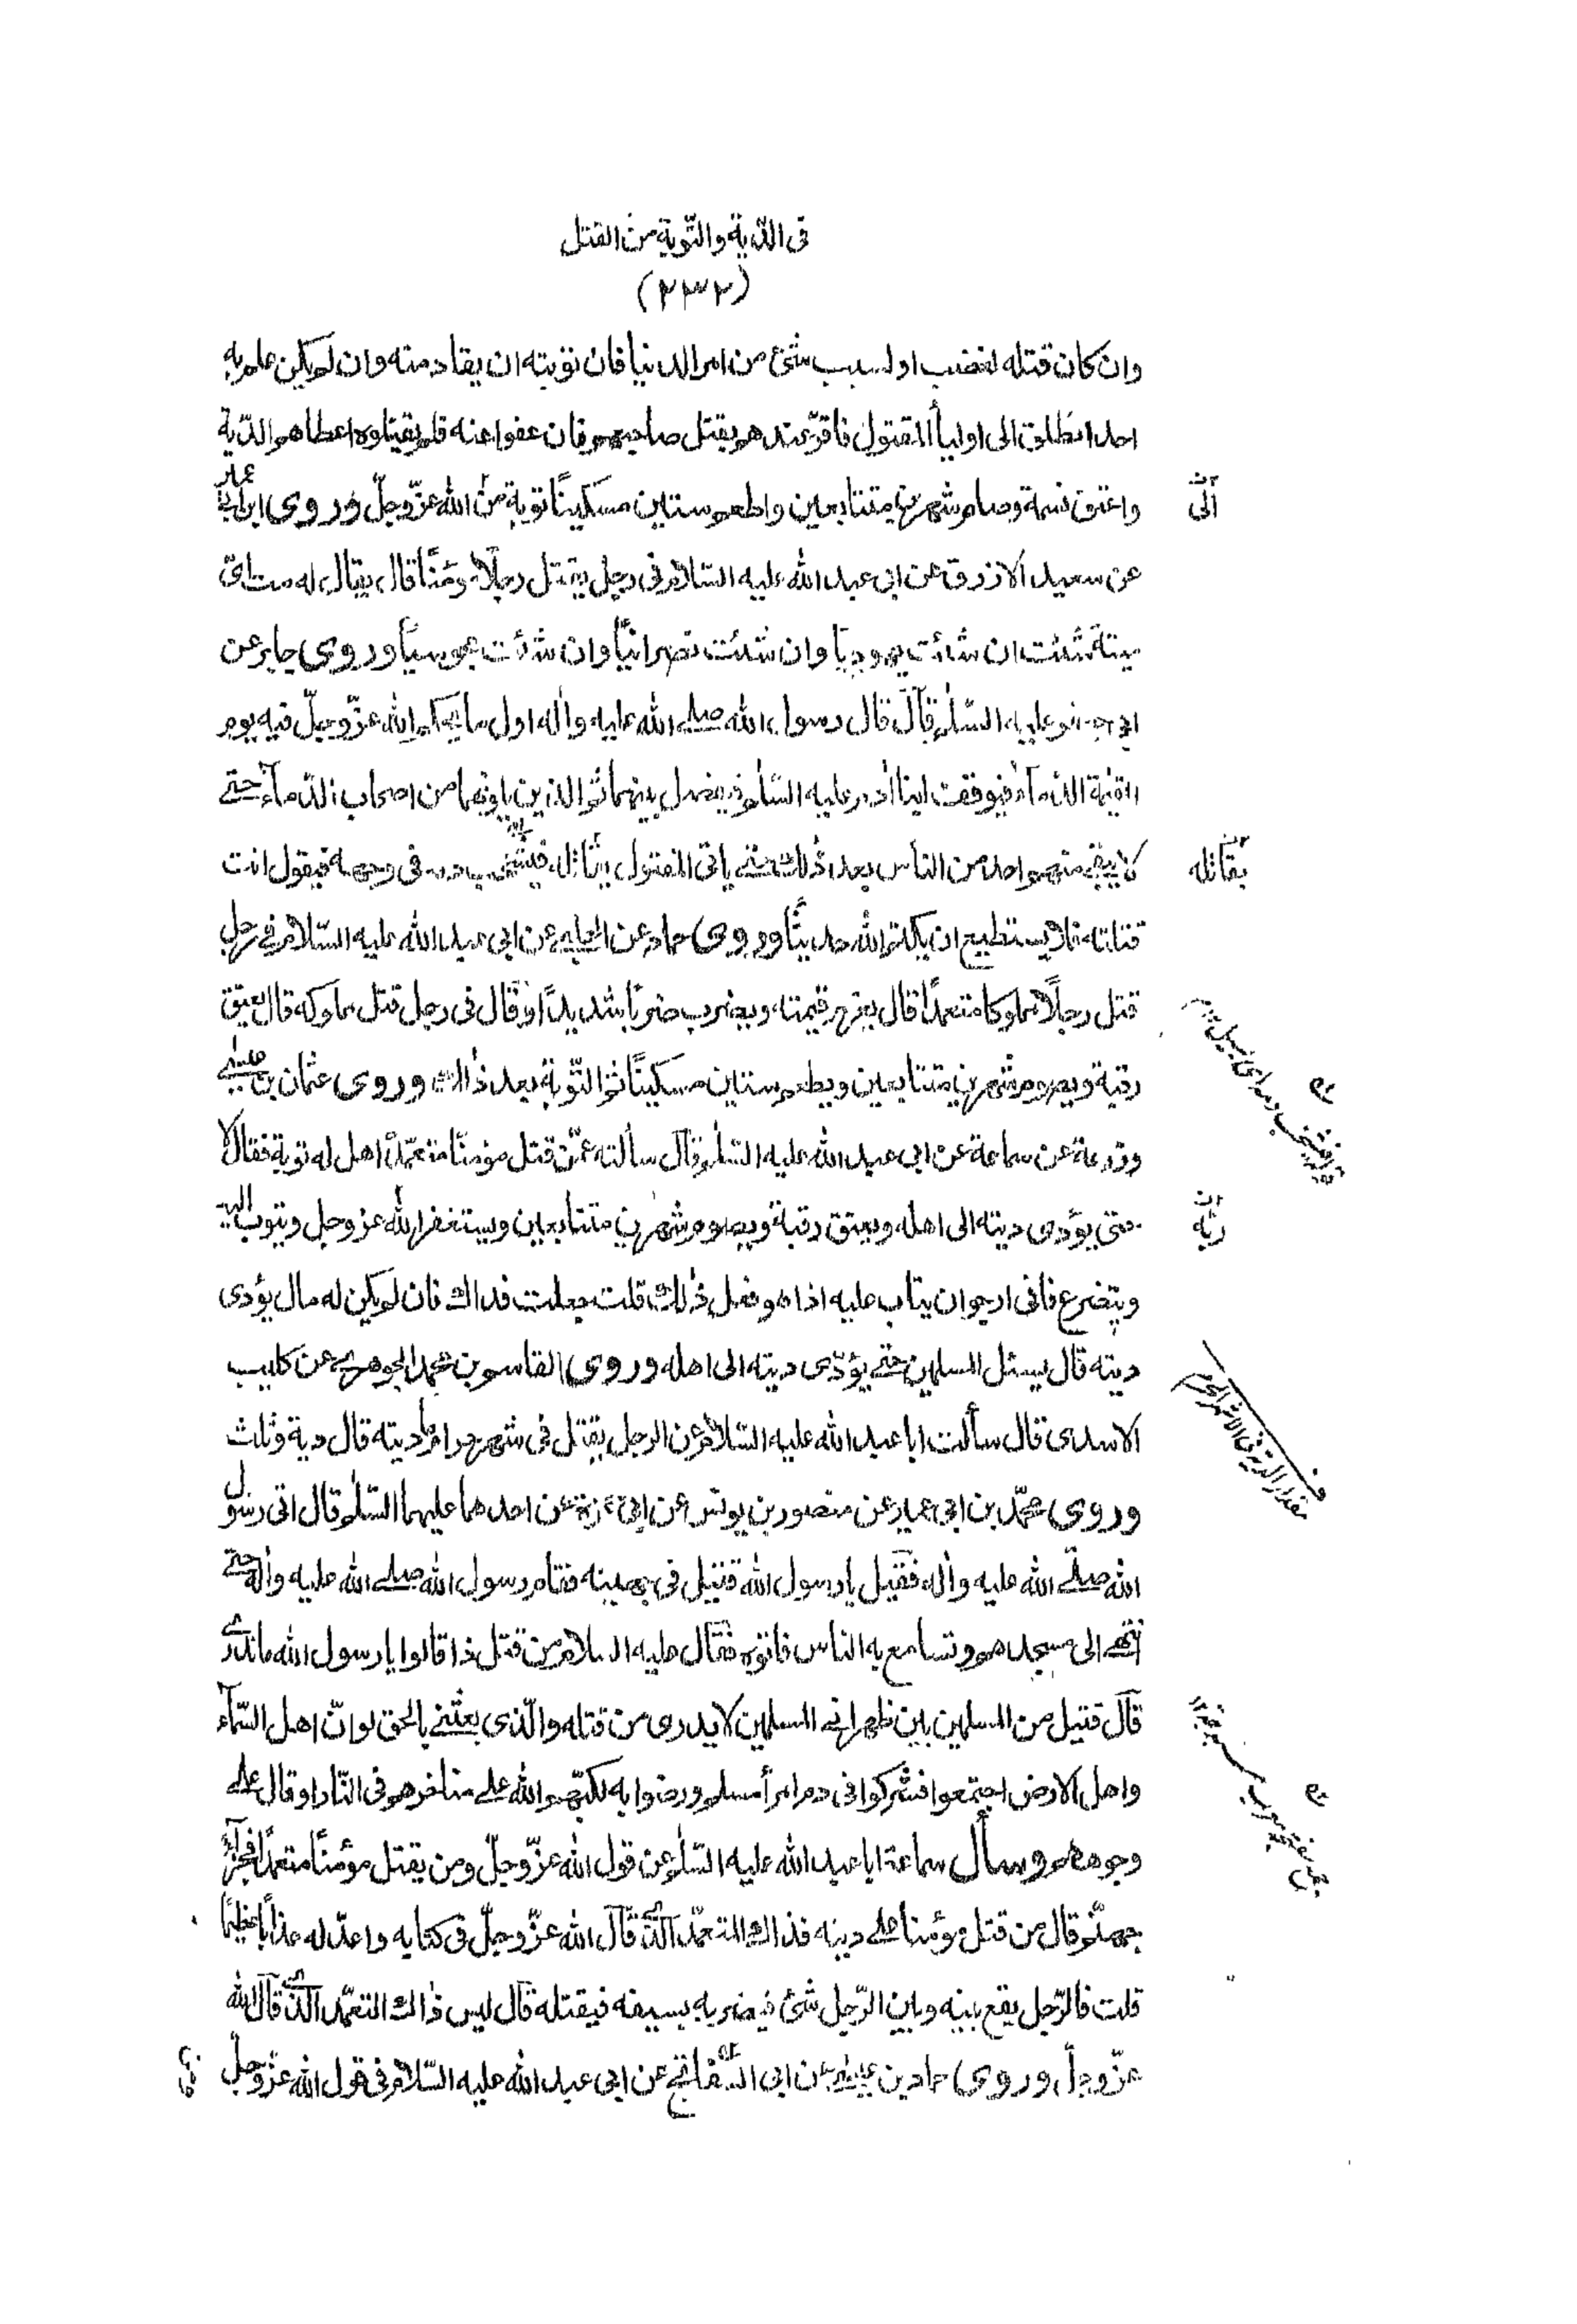 فى الدّية والتّوبة من القتل
(٢٣٢)
وان كان قتله لغضب او لسبب شئ من امر الدنيا فان توبته ان يقاد منه وان لم يكن علم به
احد انطلق الى اولياء المقتول فاقرّ عندهم بقتل صاحبهم فان عفوا عنه فلم يقتلوه اعطاهم الدّية
واعتق نسمة وصام شهرين متتابعين واطعم ستين مسكينًا توبة من الله عزّ وجلّ وروى ابن ابى عمير
الى
عن سعيد الازرق عن ابى عبد الله عليه السّلام فى رجل يقتل رجلًا مؤمنًا قال يقال له مت اىّ
ميتة شئت ان شئت يهوديًا وان شئت نصرانيًّا وان شئت مجوسيًّا وروى جابر عن
ابى جعفر عليه السّلم قال قال رسول الله صلى الله عليه واٰله اول ما يحكم الله عزّ وجلّ فيه يوم
القيٰمة الدّماء فيوقف ابنا اٰدم عليه السّلم فيفصل بينهما ثم الذين يلونهما من اصحاب الدّماء حتى
لا يبقى منهم واحد من الناس بعد ذٰلك حتى ياتى المقتول بقاتله فيشخب دمه فى وجهه فيقول انت
بقاتله
قتلته فلا يستطيع ان يكتم الله حديثًا وروى حماد عن الحلبى عن ابى عبد الله عليه السّلام فى رجل
قتل رجلًا مملوكا متعمدًا قال يغرم قيمته ويضرب ضربًا شديدًا وقال فى رجل قتل مملوكه قال يعتق
رقبة ويصوم شهرين متتابعين ويطعم ستين مسكينًا ثم التّوبة بعد ذٰلك وروى عثمان بن عيسى
وزرعة عن سماعة عن ابى عبد الله عليه السّلم قال سألته عمّن قتل مؤمنًا متعمّدًا هل له توبة فقال لا
حتى يؤدى ديته الى اهله ويعتق رقبة ويصوم شهرين متتابعين ويستغفر الله عز وجل ويتوب اليه
ويتضرع فانى ارجو ان يتاب عليه اذا هو فعل ذٰلك قلت جعلت فداك فان لم يكن له مال يؤدى
ديته قال يسئل المسلمين حتى يؤدّى ديته الى اهله وروى القاسم بن محمد الجوهرى عن كليب
الاسدى قال سألت ابا عبد الله عليه السّلام عن الرجل يقتل فى شهر حرام ما ديته قال دية وثلث
مقدار الدية فى الاشهر الحرم
وروى محمّد بن ابى عمير عن منصور بن يونس عن ابى حمزة عن احدهما عليهما السّلم قال اتى رسول
الله صلّى الله عليه واٰله فقيل يا رسول الله قتيل فى جهينه فقام رسول الله صلى الله عليه واٰله حتى
انتهى الى مسجدهم وتسامع به الناس فاتوه فقال عليه السلام من قتل ذا قالوا يا رسول الله ما ندرى
قال قتيل من المسلمين بين ظهرانى المسلمين لا يدرى من قتله والّذى بعثنى بالحق لو انّ اهل السّماء
واهل الارض اجتمعوا فشركوا فى دم امرأ مسلم ورضوا به لكبّهم الله على مناخرهم فى النّار او قال على
وجوههم وسأل سماعة ابا عبد الله عليه السّلم عن قول الله عزّ وجلّ ومن يقتل مؤمنًا متعمدًا فجزاؤه
جهنّم قال من قتل مؤمنا على دينه فذاك المتعمّد الذى قال الله عزّ وجلّ فى كتابه واعدّ له عذابًا عظيمًا
قلت فالرّجل يقع بينه وبين الرّجل شئ فيضربه بسيفه فيقتله قال ليس ذاك المتعمّد الذى قال الله
عزّ وجلّ وروى حماد بن عيسى عن ابى السفاتج عن ابى عبد الله عليه السّلام فى قول الله عزّ وجلّ